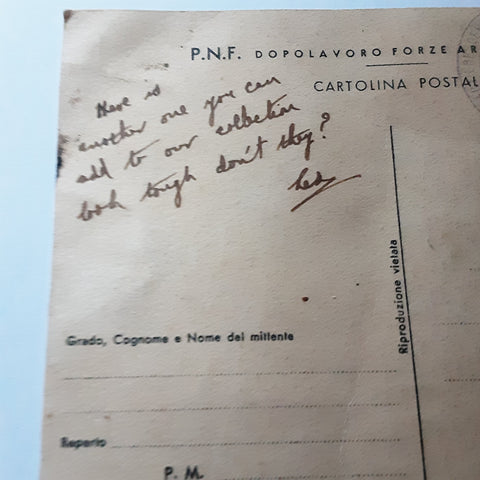 P.N.F. DOPOLAVORO FORZE AR
CARTOLINA POSTAL
Here is
another one you can
add to our collection
look tough don't they?
Les
Riproduzione vietata
Grado, Cognome e Nome del mittente
Reparto
P. M.